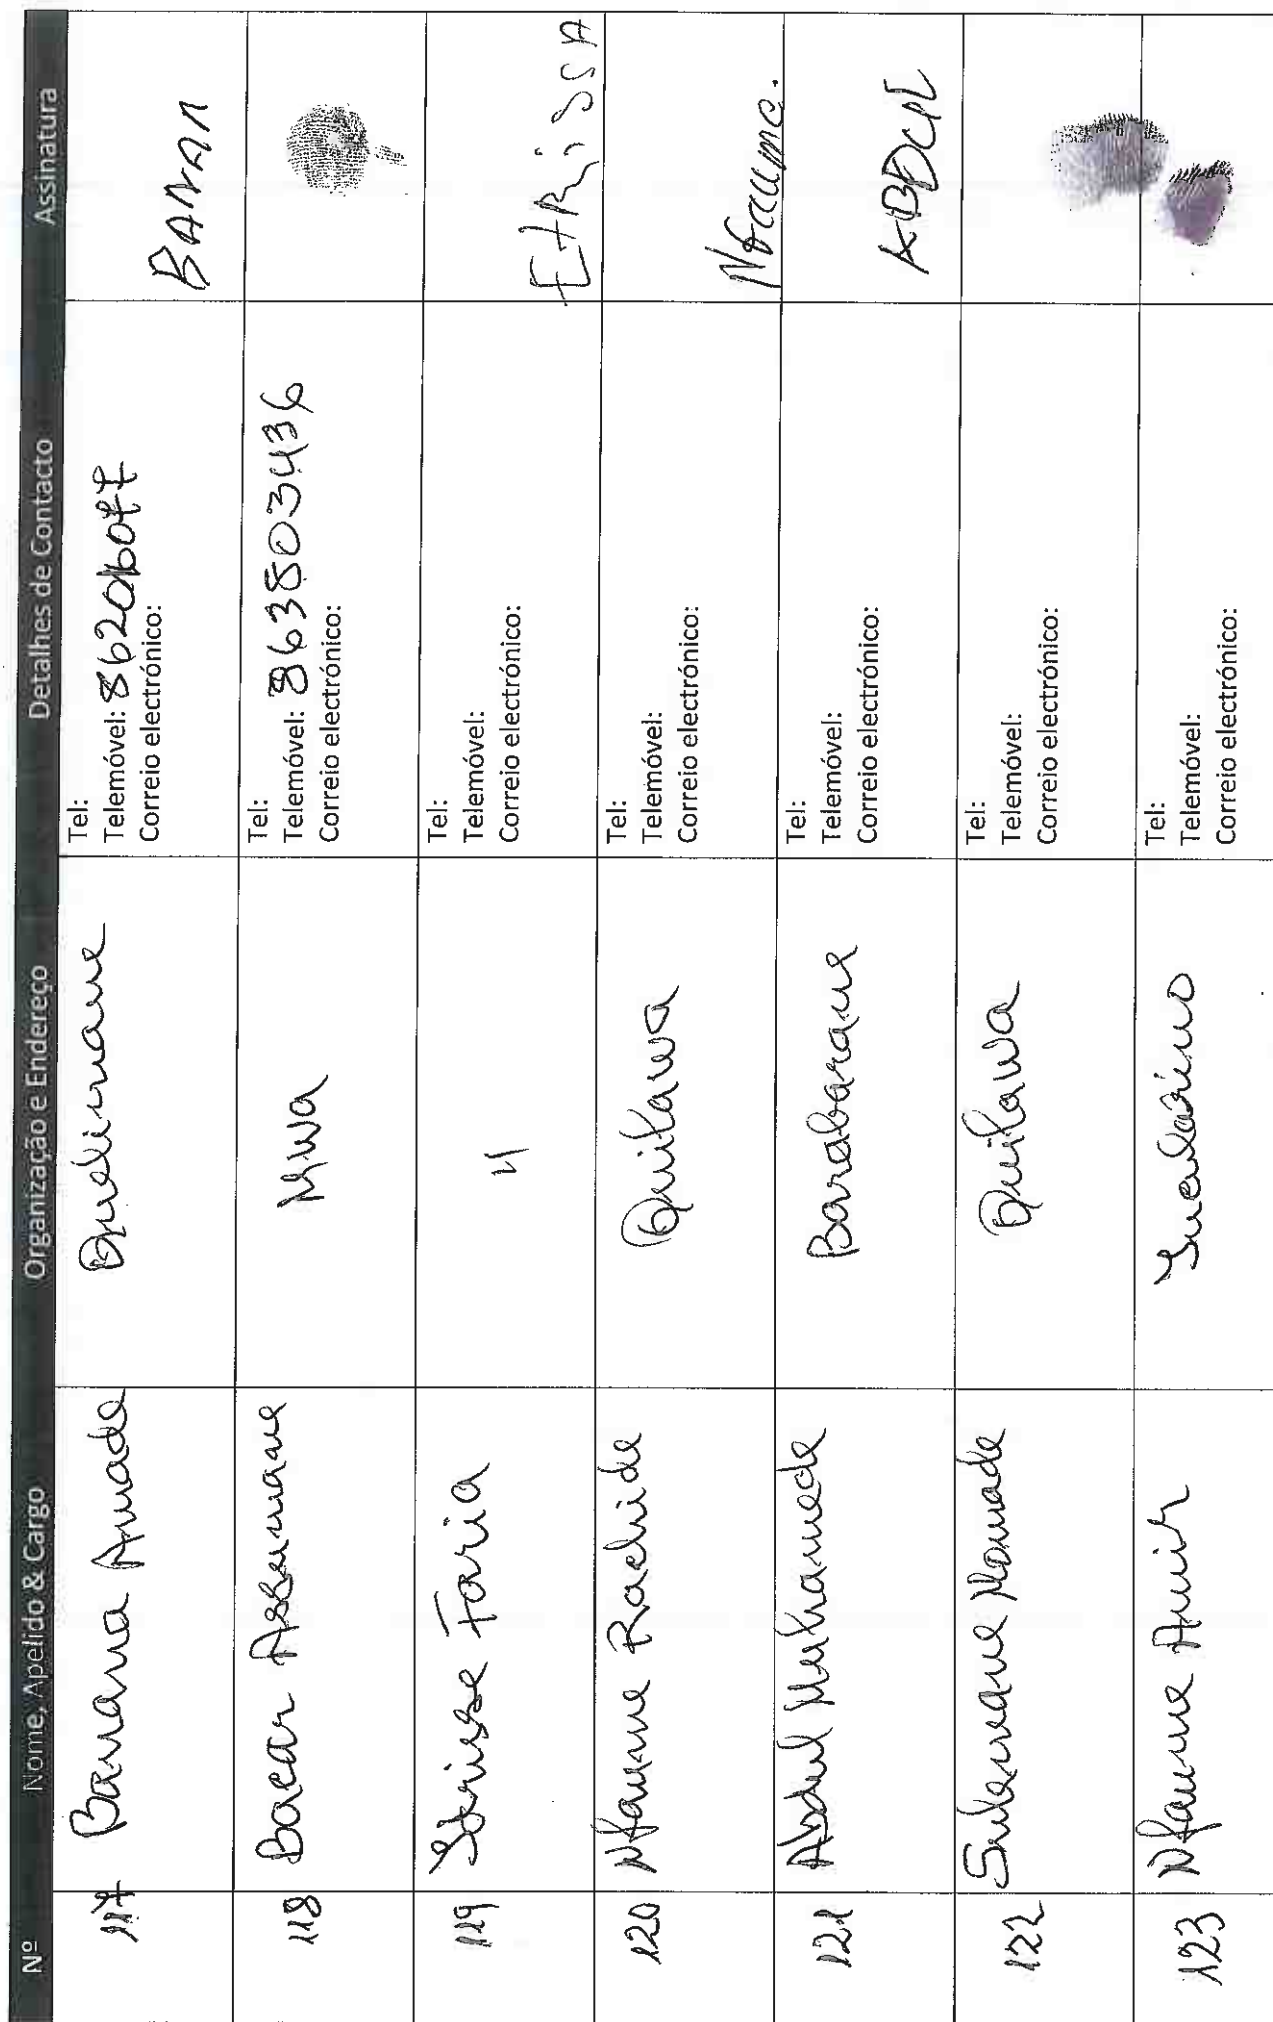 Nº Nome, Apelido & Cargo Organização e Endereço Detalhes de Contacto Assinatura
117 Banana Amade Quelimane Tel:
Telemóvel: 862016077
Correio electrónico:
BANAN
118 Bacar Assumane Mwa Tel:
Telemóvel: 863803436
Correio electrónico:
119 Faria 4 Tel:
Telemóvel:
Correio electrónico:
120 Nfaume Rachide Quilawa Tel:
Telemóvel:
Correio electrónico:
Nfaume.
121 Abdul Muhamede Barabarane Tel:
Telemóvel:
Correio electrónico:
ABDUL
122 Sulemane Momade Quilawa Tel:
Telemóvel:
Correio electrónico:
123 Nfaume Amir Tel:
Telemóvel:
Correio electrónico: